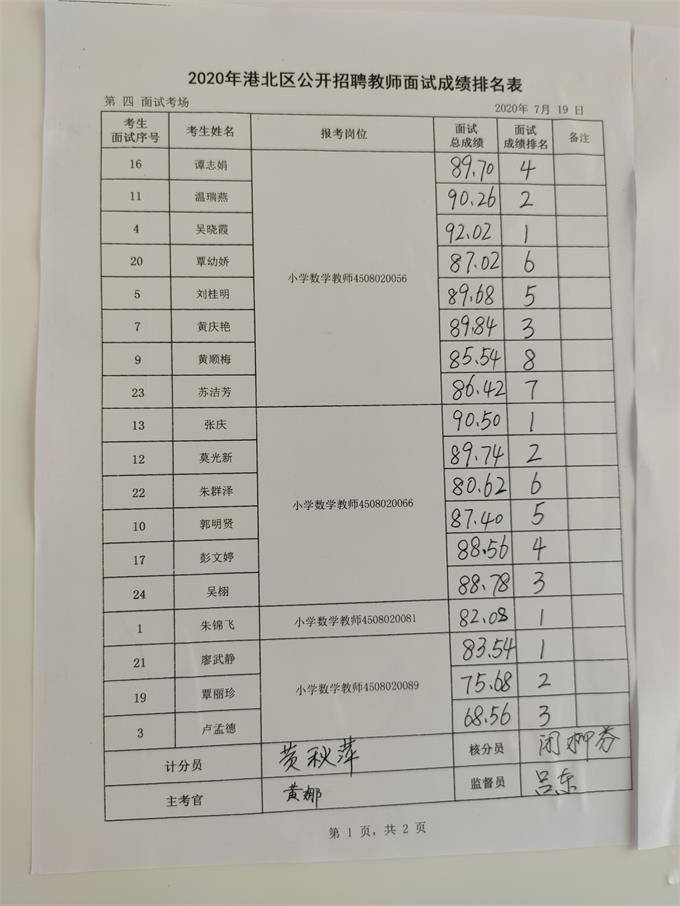 2020年港北区公开招聘教师面试成绩排名表
第 四 面试考场 2020年 7月 19 日
考生面试序号 考生姓名 报考岗位 面试总成绩 面试成绩排名 备注
16 谭志娟 89.70 4
11 温瑞燕 90.26 2
4 吴晓霞 92.02 1
20 覃幼娇 87.02 6
小学数学教师4508020056
5 刘桂明 89.68 5
7 黄庆艳 89.84 3
9 黄顺梅 85.54 8
23 苏洁芳 86.42 7
13 张庆 90.50 1
12 莫光新 89.74 2
22 朱群泽 80.62 6
小学数学教师4508020066
10 郭明贤 87.40 5
17 彭文婷 88.56 4
24 吴栩 88.78 3
1 朱锦飞 小学数学教师4508020081 82.08 1
21 廖武静 83.54 1
19 覃丽珍 小学数学教师4508020089 75.68 2
3 卢孟德 68.56 3
计分员 黄秋萍 核分员
主考官 黄娜 监督员 吕东
第 1 页, 共 2 页